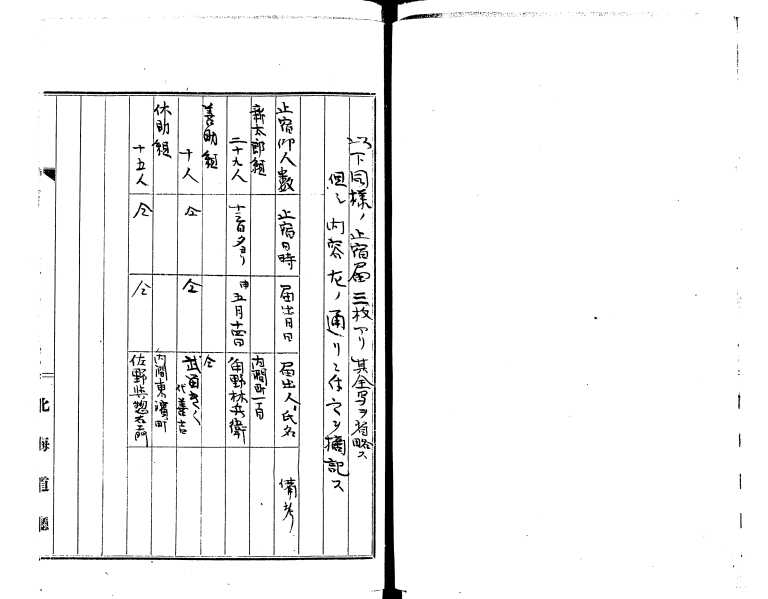 以下同様ノ止宿届三枚アリ其全写ヲ省略ス
但シ内容左ノ通リニ付之ヲ摘記ス
止宿仰人数 止宿日時 届出月日 届出人氏名 備考
新太郎組 内澗町一丁目
二十九人 十三日夕ヨリ 申五月十四日 角野林兵衛
善助組 仝
十人 仝 仝 武百きく 代善吉
休助組 内澗東濱町
十五人 仝 仝 佐野與惣右衛門
北海道廳